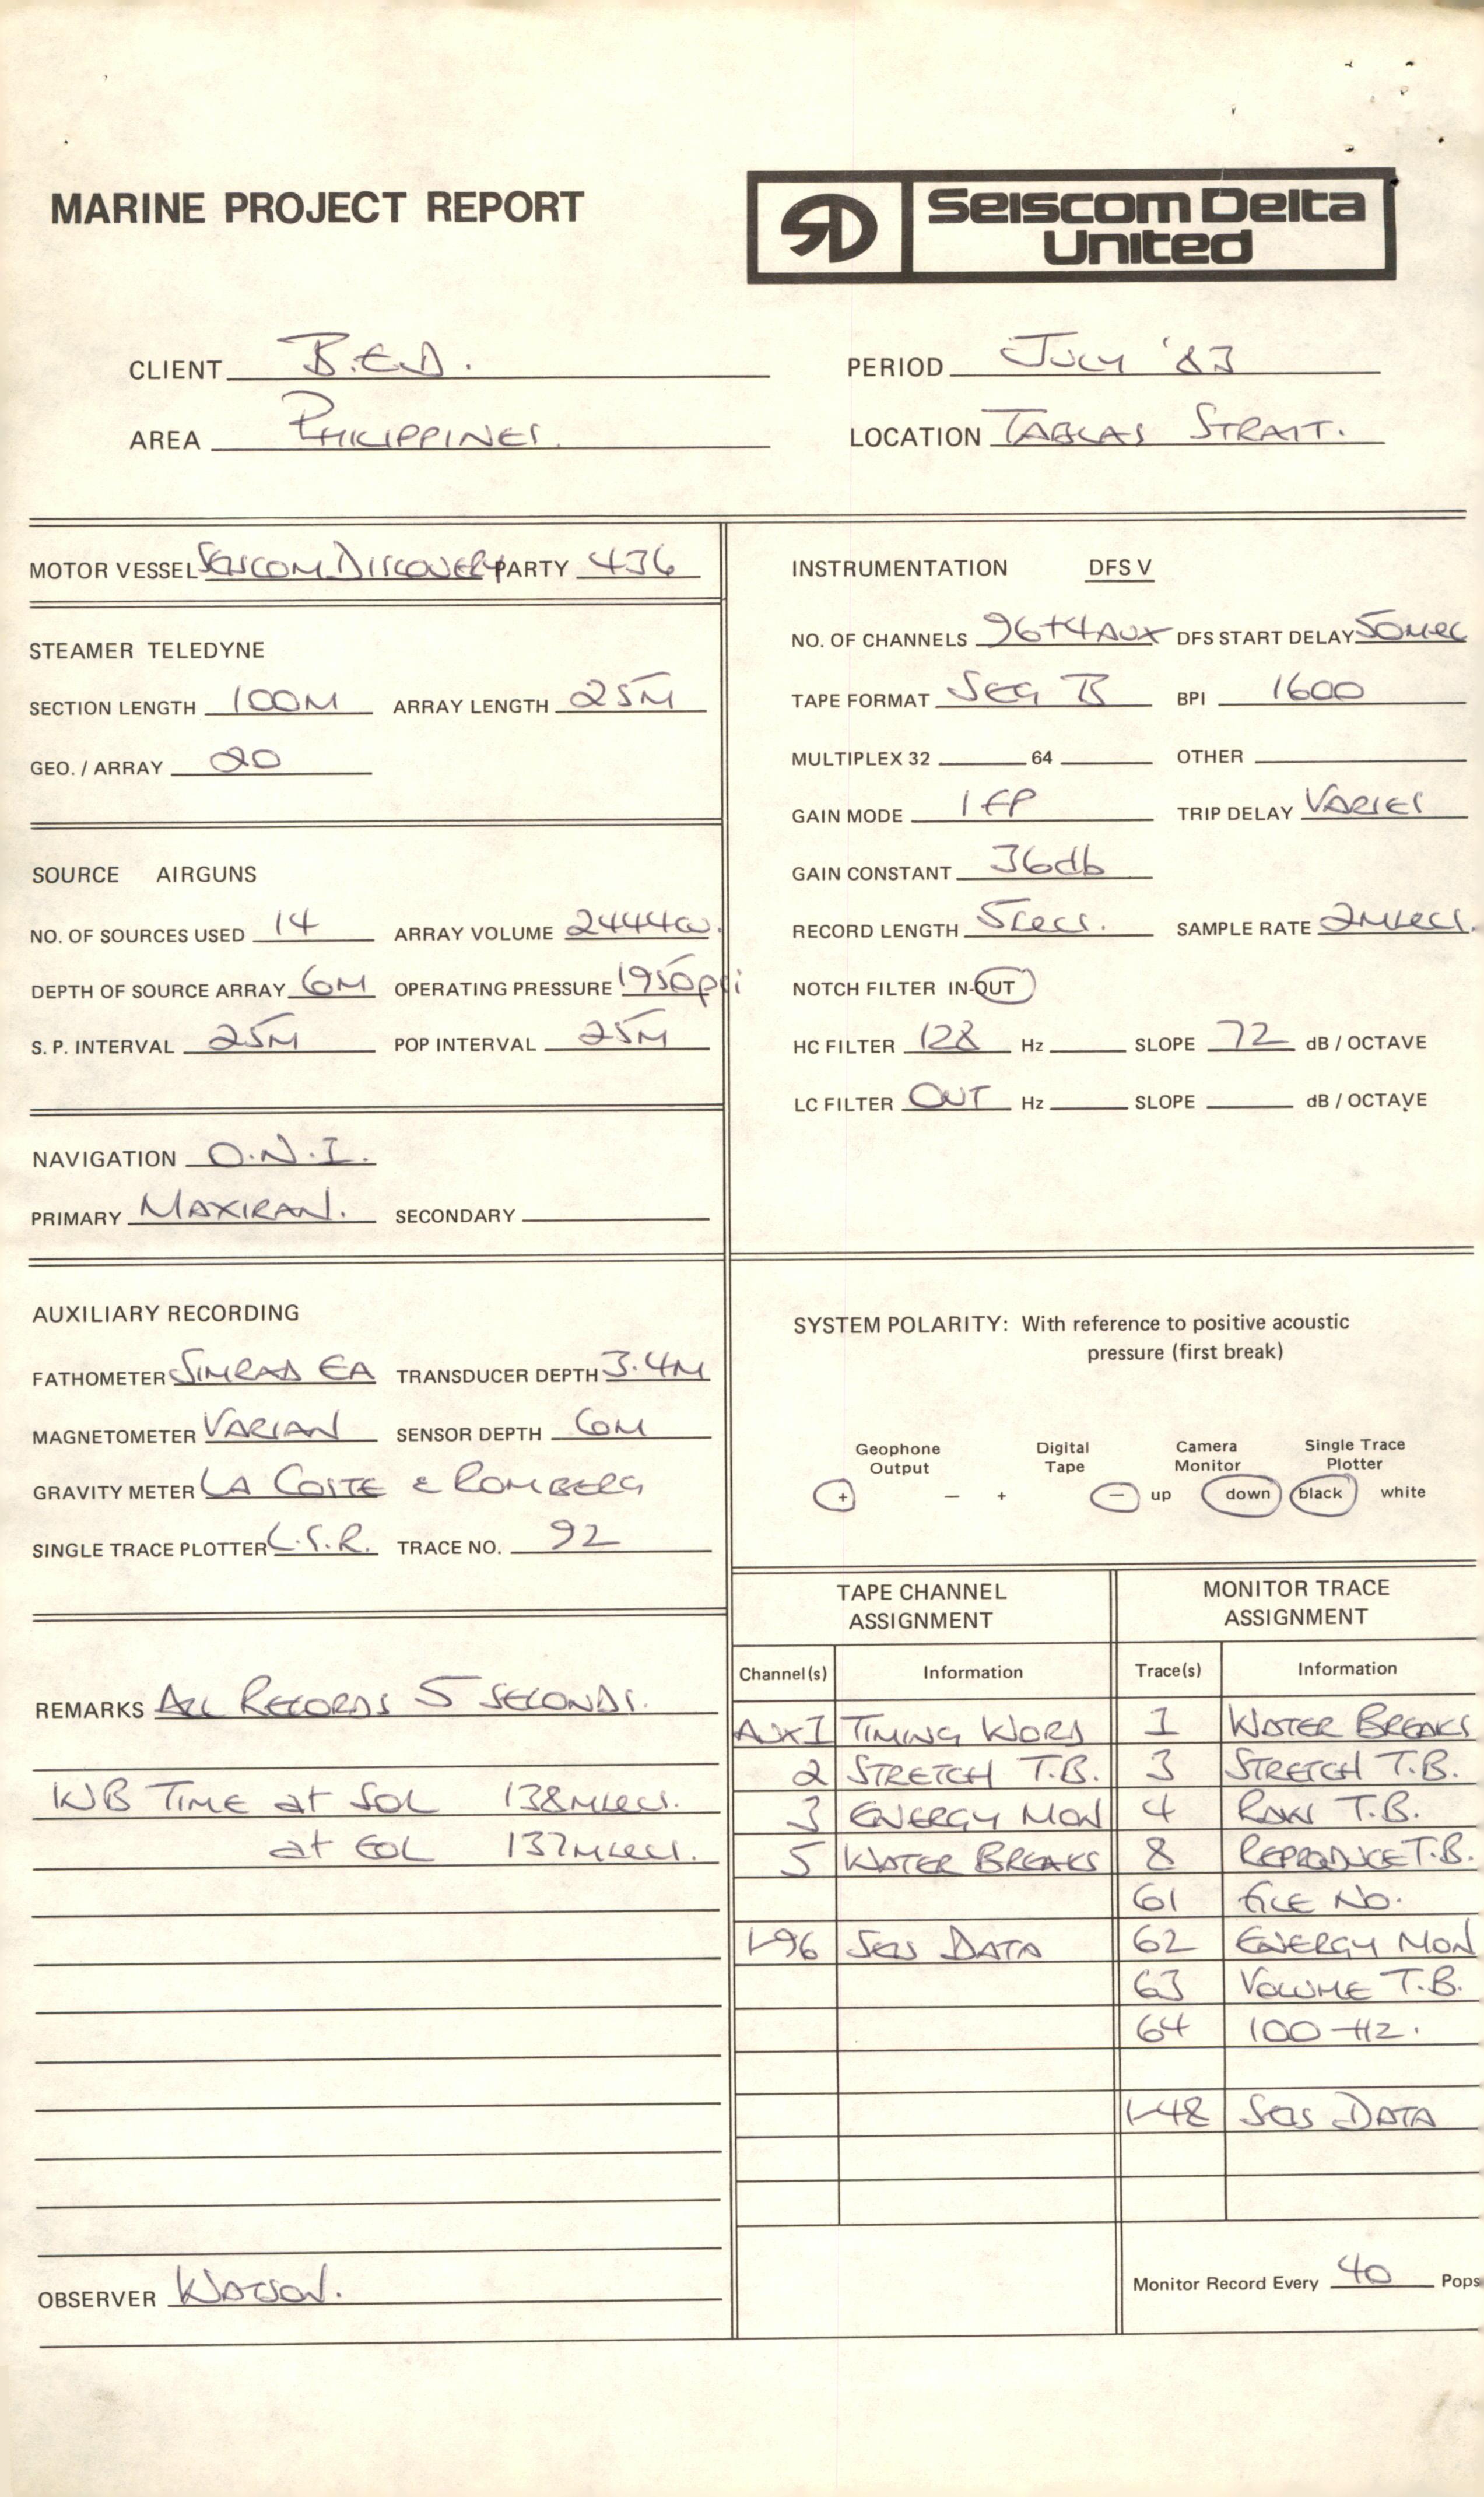 MARINE PROJECT REPORT
SD Seiscom Delta
United
CLIENT B.E.D. PERIOD JULY '83
AREA PHILIPPINES. LOCATION TABLAS STRAIT.
MOTOR VESSEL SEISCOM DISCOVERY PARTY 436
STEAMER TELEDYNE
SECTION LENGTH 100M ARRAY LENGTH 25M
GEO. / ARRAY 20
SOURCE AIRGUNS
NO. OF SOURCES USED 14 ARRAY VOLUME 2444
DEPTH OF SOURCE ARRAY 6M OPERATING PRESSURE 1950psi
S. P. INTERVAL 25M POP INTERVAL 25M
NAVIGATION O.N.I.
PRIMARY MAXIRAN. SECONDARY
AUXILIARY RECORDING
FATHOMETER SIMRAD EA TRANSDUCER DEPTH 3.4M
MAGNETOMETER VARIAN SENSOR DEPTH 6M
GRAVITY METER LA COSTE & ROMBERG
SINGLE TRACE PLOTTER L.S.R. TRACE NO. 92
REMARKS ALL RECORDS 5 SECONDS.
WB TIME at SOL 138msecs.
at EOL 137msecs.
OBSERVER WATSON.
INSTRUMENTATION DFS V
NO. OF CHANNELS 96+4AUX DFS START DELAY 50msec
TAPE FORMAT SEG B BPI 1600
MULTIPLEX 32 64 OTHER
GAIN MODE IFP TRIP DELAY VARIES
GAIN CONSTANT 36db
RECORD LENGTH 5secs. SAMPLE RATE 2msecs.
NOTCH FILTER IN-OUT
HC FILTER 128 Hz SLOPE 72 dB / OCTAVE
LC FILTER OUT Hz SLOPE dB / OCTAVE
SYSTEM POLARITY: With reference to positive acoustic
pressure (first break)
Geophone Digital Camera Single Trace
Output Tape Monitor Plotter
+ — + — up down black white
TAPE CHANNEL MONITOR TRACE
ASSIGNMENT ASSIGNMENT
Channel(s) Information Trace(s) Information
AUX 1 TIMING WORD 1 WATER BREAKS
2 STRETCH T.B. 3 STRETCH T.B.
3 ENERGY MON 4 RAW T.B.
5 WATER BREAKS 8 REPRODUCE T.B.
61 FILE NO.
1-96 SEIS DATA 62 ENERGY MON
63 VOLUME T.B.
64 100 HZ.
1-48 SEIS DATA
Monitor Record Every 40 Pops